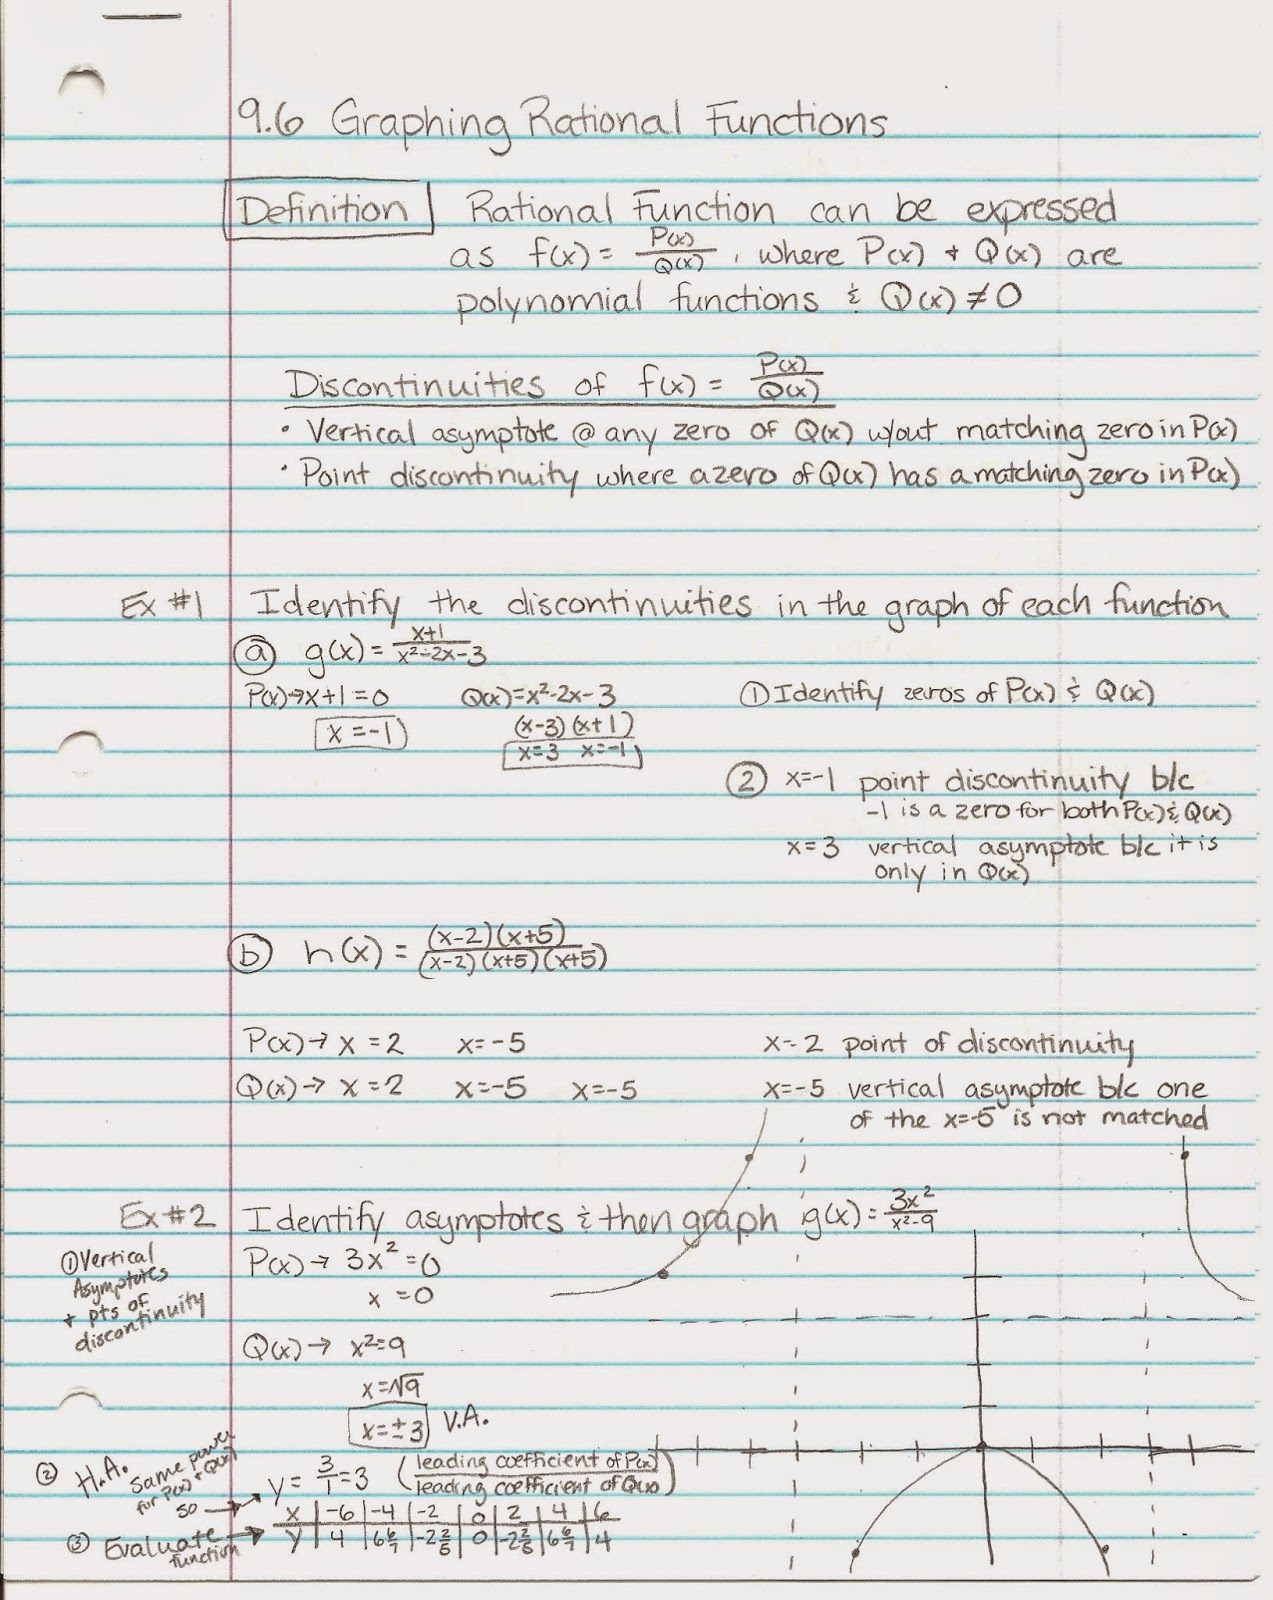 9.6 Graphing Rational Functions
Definition Rational Function can be expressed
as f(x) = P(x)/Q(x), where P(x) + Q(x) are
polynomial functions & Q(x) ≠ 0
Discontinuities of f(x) = P(x)/Q(x)
• Vertical asymptote @ any zero of Q(x) w/out matching zero in P(x)
• Point discontinuity where a zero of Q(x) has a matching zero in P(x)
Ex #1 Identify the discontinuities in the graph of each function
ⓐ g(x) = x+1/x²-2x-3
P(x)→x+1=0 Q(x)=x²-2x-3 ① Identify zeros of P(x) & Q(x)
x=-1 (x-3)(x+1)
x=3 x=-1
② x=-1 point discontinuity b/c
-1 is a zero for both P(x) & Q(x)
x=3 vertical asymptote b/c it is
only in Q(x)
ⓑ h(x) = (x-2)(x+5)/(x-2)(x+5)(x+5)
P(x)→ x=2 x=-5 x-2 point of discontinuity
Q(x)→ x=2 x=-5 x=-5 x=-5 vertical asymptote b/c one
of the x=-5 is not matched
Ex #2 Identify asymptotes & then graph g(x) = 3x²/x²-9
① Vertical
Asymptotes
+ pts of
discontinuity
P(x)→ 3x²=0
x=0
Q(x)→ x²=9
x=√9
x=±3 V.A.
② H.A. Same power
for P(x) + Q(x)
so →
y = 3/1 = 3 (leading coefficient of P(x)/leading coefficient of Q(x))
③ Evaluate
function
x -6 -4 -2 0 2 4 6
y 4 6 6/7 -2 2/5 0 -2 2/5 6 6/7 4